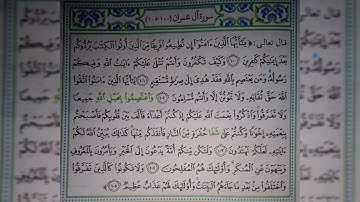 سورة آل عمران (١٠٠-١٠٥)
قال تعالى: ﴿ يَٰٓأَيُّهَا ٱلَّذِينَ ءَامَنُوٓاْ إِن تُطِيعُواْ فَرِيقٗا مِّنَ ٱلَّذِينَ أُوتُواْ ٱلۡكِتَٰبَ يَرُدُّوكُم
بَعۡدَ إِيمَٰنِكُمۡ كَٰفِرِينَ ١٠٠ وَكَيۡفَ تَكۡفُرُونَ وَأَنتُمۡ تُتۡلَىٰ عَلَيۡكُمۡ ءَايَٰتُ ٱللَّهِ وَفِيكُمۡ
رَسُولُهُۥۗ وَمَن يَعۡتَصِم بِٱللَّهِ فَقَدۡ هُدِيَ إِلَىٰ صِرَٰطٖ مُّسۡتَقِيمٖ ١٠١ يَٰٓأَيُّهَا ٱلَّذِينَ ءَامَنُواْ ٱتَّقُواْ
ٱللَّهَ حَقَّ تُقَاتِهِۦ وَلَا تَمُوتُنَّ إِلَّا وَأَنتُم مُّسۡلِمُونَ ١٠٢ وَٱعۡتَصِمُواْ بِحَبۡلِ ٱللَّهِ جَمِيعٗا
وَلَا تَفَرَّقُواْۚ وَٱذۡكُرُواْ نِعۡمَتَ ٱللَّهِ عَلَيۡكُمۡ إِذۡ كُنتُمۡ أَعۡدَآءٗ فَأَلَّفَ بَيۡنَ قُلُوبِكُمۡ فَأَصۡبَحۡتُم
بِنِعۡمَتِهِۦٓ إِخۡوَٰنٗا وَكُنتُمۡ عَلَىٰ شَفَا حُفۡرَةٖ مِّنَ ٱلنَّارِ فَأَنقَذَكُم مِّنۡهَاۗ كَذَٰلِكَ يُبَيِّنُ ٱللَّهُ لَكُمۡ
ءَايَٰتِهِۦ لَعَلَّكُمۡ تَهۡتَدُونَ ١٠٣ وَلۡتَكُن مِّنكُمۡ أُمَّةٞ يَدۡعُونَ إِلَى ٱلۡخَيۡرِ وَيَأۡمُرُونَ بِٱلۡمَعۡرُوفِ
وَيَنۡهَوۡنَ عَنِ ٱلۡمُنكَرِۚ وَأُوْلَٰٓئِكَ هُمُ ٱلۡمُفۡلِحُونَ ١٠٤ وَلَا تَكُونُواْ كَٱلَّذِينَ تَفَرَّقُواْ
وَٱخۡتَلَفُواْ مِنۢ بَعۡدِ مَا جَآءَهُمُ ٱلۡبَيِّنَٰتُۚ وَأُوْلَٰٓئِكَ لَهُمۡ عَذَابٌ عَظِيمٞ ١٠٥ ﴾